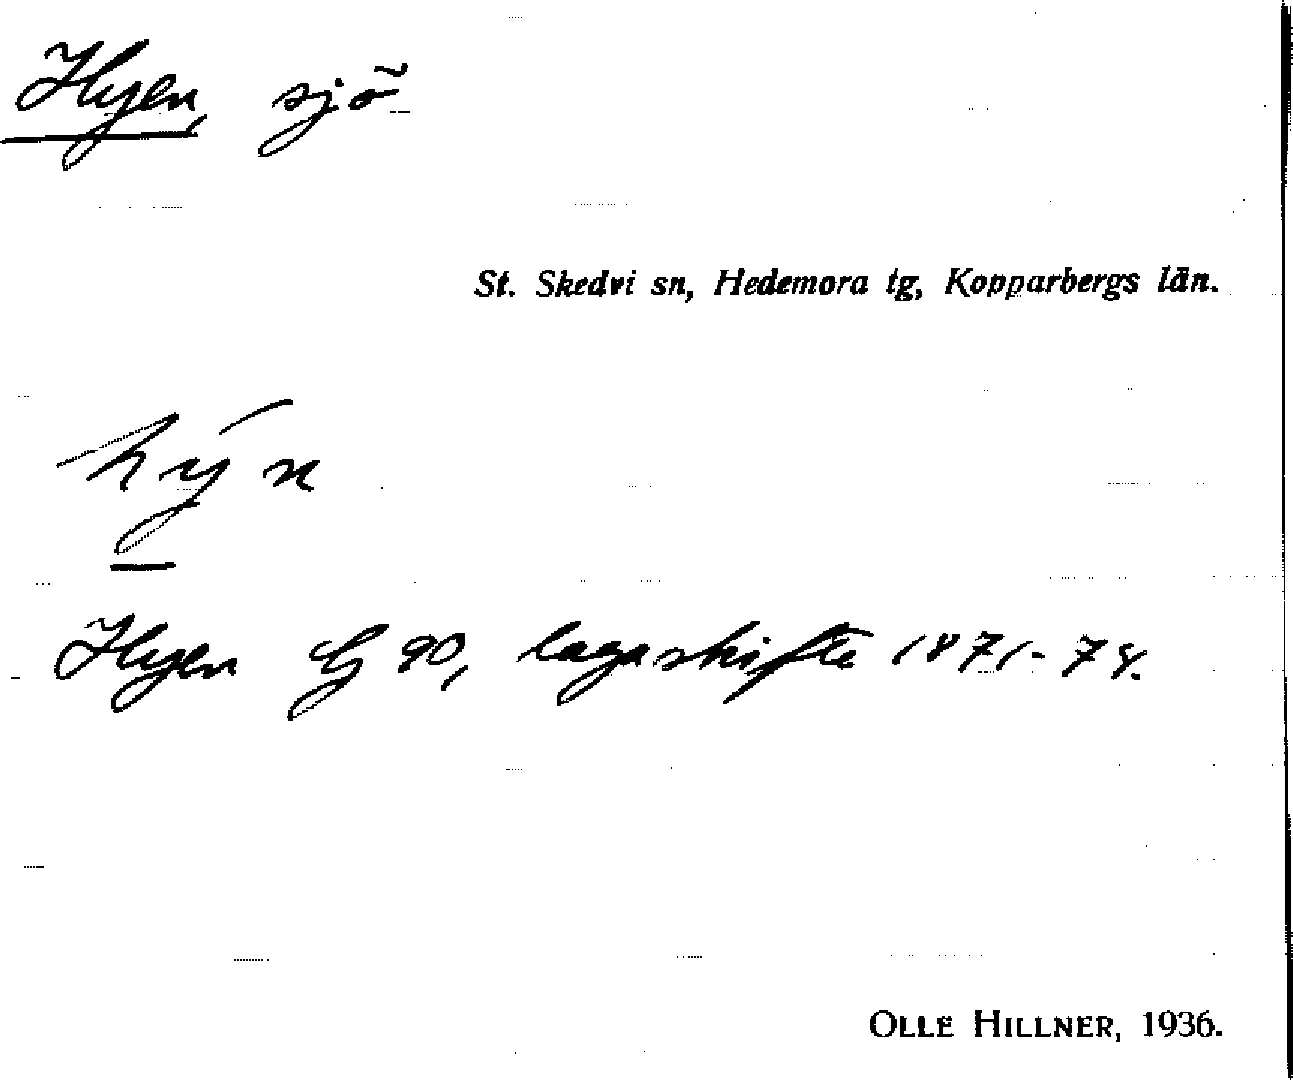 Hyen, sjö
St. Skedvi sn, Hedemora tg, Kopparbergs län.
hýn
Hyen G 90, lagaskifte 1871-78.
OLLE HILLNER, 1936.